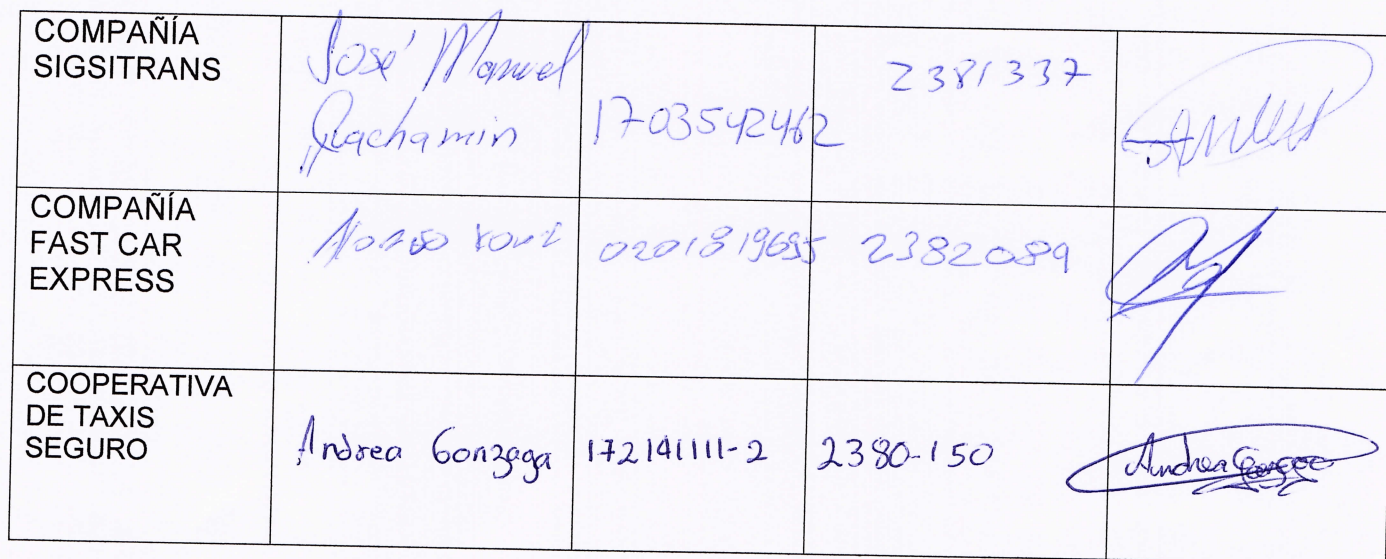 COMPAÑÍA
SIGSITRANS
José Manuel
Quachamin
1703542462
2381337
COMPAÑÍA
FAST CAR
EXPRESS
2382089
COOPERATIVA
DE TAXIS
SEGURO
Andrea Gonzaga
172141111-2
2380-150
Andrea